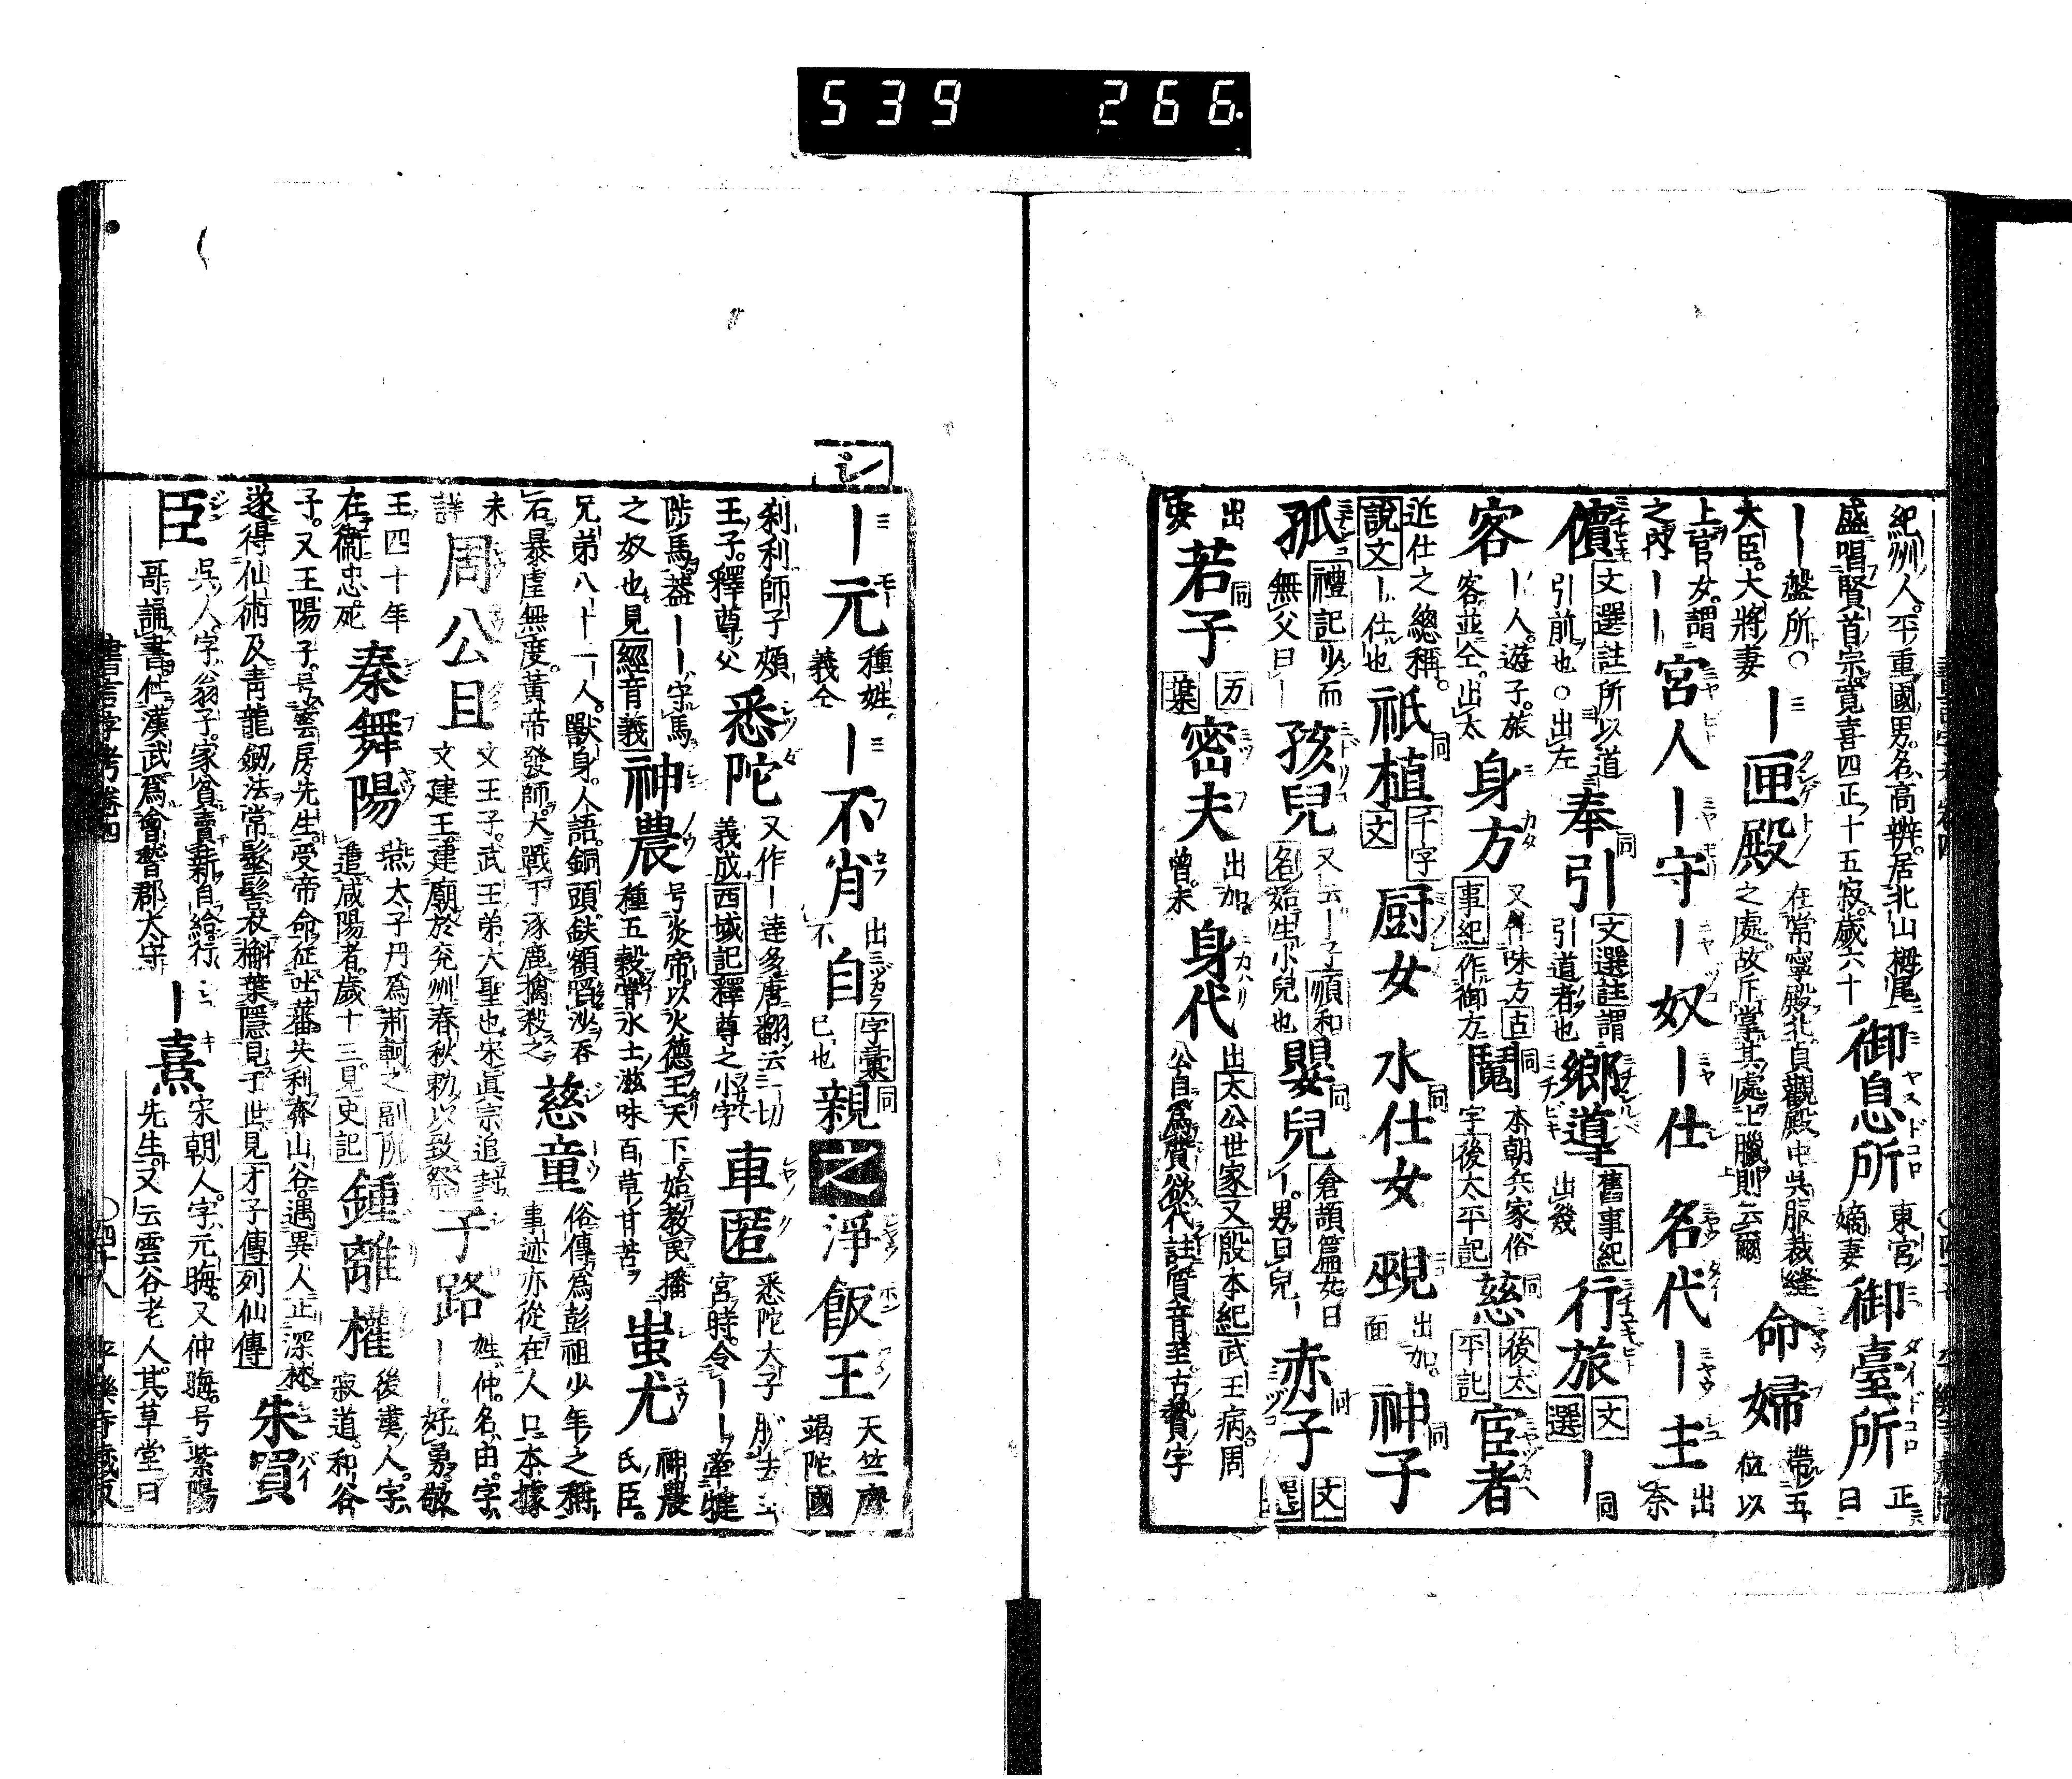 539 266
紀州人。平重國男。名高辨。居北山栂尾
盛唱賢首宗。寛喜四正十五寂。歳六十
御息所 東宮 嫡妻 御臺所 正 曰
|盤所。○ |匣殿 在常寧殿北貞觀殿中呉服裁縫
大臣。大將妻 之處。故斥掌其處上臈則云爾
命婦 帶五 位以
上官女。謂 之内|| 宮人 |守 |奴 |仕 名代 |主 出 奈
儐 文選註 所以道 引前也○出左 奉引 同 文選註 謂 引道者也 鄉導 舊事紀 出幾 行旅 文選 | 同
客 |人。遊子。旅 客並仝。出太 身方 又作味方 古 事紀 作御方 鬩 同 本朝兵家俗 字 後太平記 慈 同 後太 平記 宦者
近仕之總稱。 說文 |仕也 祇植 同 千字 文 厨女 水仕女 同 覡 出加。 面 神子 同
孤 禮記 少而 無父曰| 孩兒 又云|子 順和 名 始生小兒也 嬰兒 同 倉頡篇 女曰 |。男曰兒| 赤子 同 文 選
出 要 若子 同 万 葉 密夫 出加。 曾末 身代 出 太公世家 又 殷本紀 武王病周 公自爲贄欲代註質音至古贄字
シ
|元 種姓。 義仝 |不肖 出 不 自 字彙 已也 親 同 之 淨飯王 天竺 竭陀國
刹利師子頰 王子。釋尊父 悉陀 又作|達多唐翻云一切 義成 西域記 釋尊之小字 車匿 悉陀太子 宮時。令||牽犍
陟馬。蓋||守馬 之奴也。見 經音義 神農 号炎帝以火德王天下。始教民播 種五穀嘗水土滋味百草甘苦 蚩尤 神農 氏臣。
兄弟八十一人。獸身。人語。銅頭。鉄額。沙呑 石暴虐無度。黄帝發師。大戰于涿鹿擒殺之 慈童 俗傳爲彭祖少年之稱 事迹亦從在人口本據
未 詳 周公旦 文王子。武王弟。大聖也。宋眞宗追封 文建王。建廟於兗州春秋勅以致祭 子路 姓仲。名由。字 ||。好勇。敬
王四十年 在衞忠死 秦舞陽 燕太子丹爲荊軻之副所 遣咸陽者。歲十三。見 史記 鍾離權 後漢人。字 寂道。和谷
子。又王陽子。号雲房先生。受帝命征吐蕃失利奔山谷。遇異人止深林。
遂得仙術及靑龍劔法常髽髻衣槲葉隱見于世見 才子傳 列仙傳 朱買
臣 呉人。字翁子。家貧賣薪自給行 哥誦書。仕漢武爲會稽郡太守 |熹 宋朝人。字元晦。又仲晦。号紫陽 先生。又云雲谷老人。其草堂曰
書言字考卷四 ○四十八